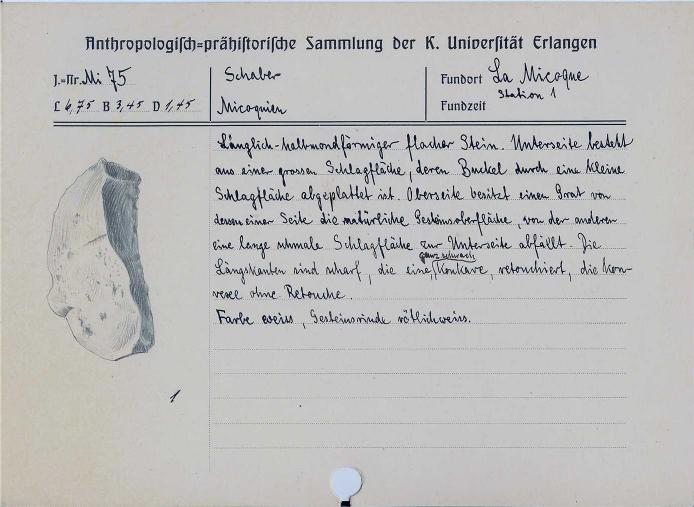 Anthropologisch-prähistorische Sammlung der K. Universität Erlangen
J.-Nr. Mi 75
L 6,75 B 3,45 D 1,45
Schaber
Micoquien
Fundort La Micoque
Station 1
Fundzeit
Länglich-halbmondförmiger flacher Stein. Unterseite besteht
aus einer grossen Schlagfläche, deren Buckel durch eine kleine
Schlagfläche abgeplattet ist. Oberseite besitzt einen Grat von
dessen einer Seite die natürliche Gesteinsoberfläche, von der anderen
eine lange schmale Schlagfläche zur Unterseite abfällt. Die
ganz schwach
Längskanten sind scharf, die eine, Konkave, retouchiert, die Kon-
vexe ohne Retouche.
Farbe weiss, Gesteinsrinde rötlichweiss.
1